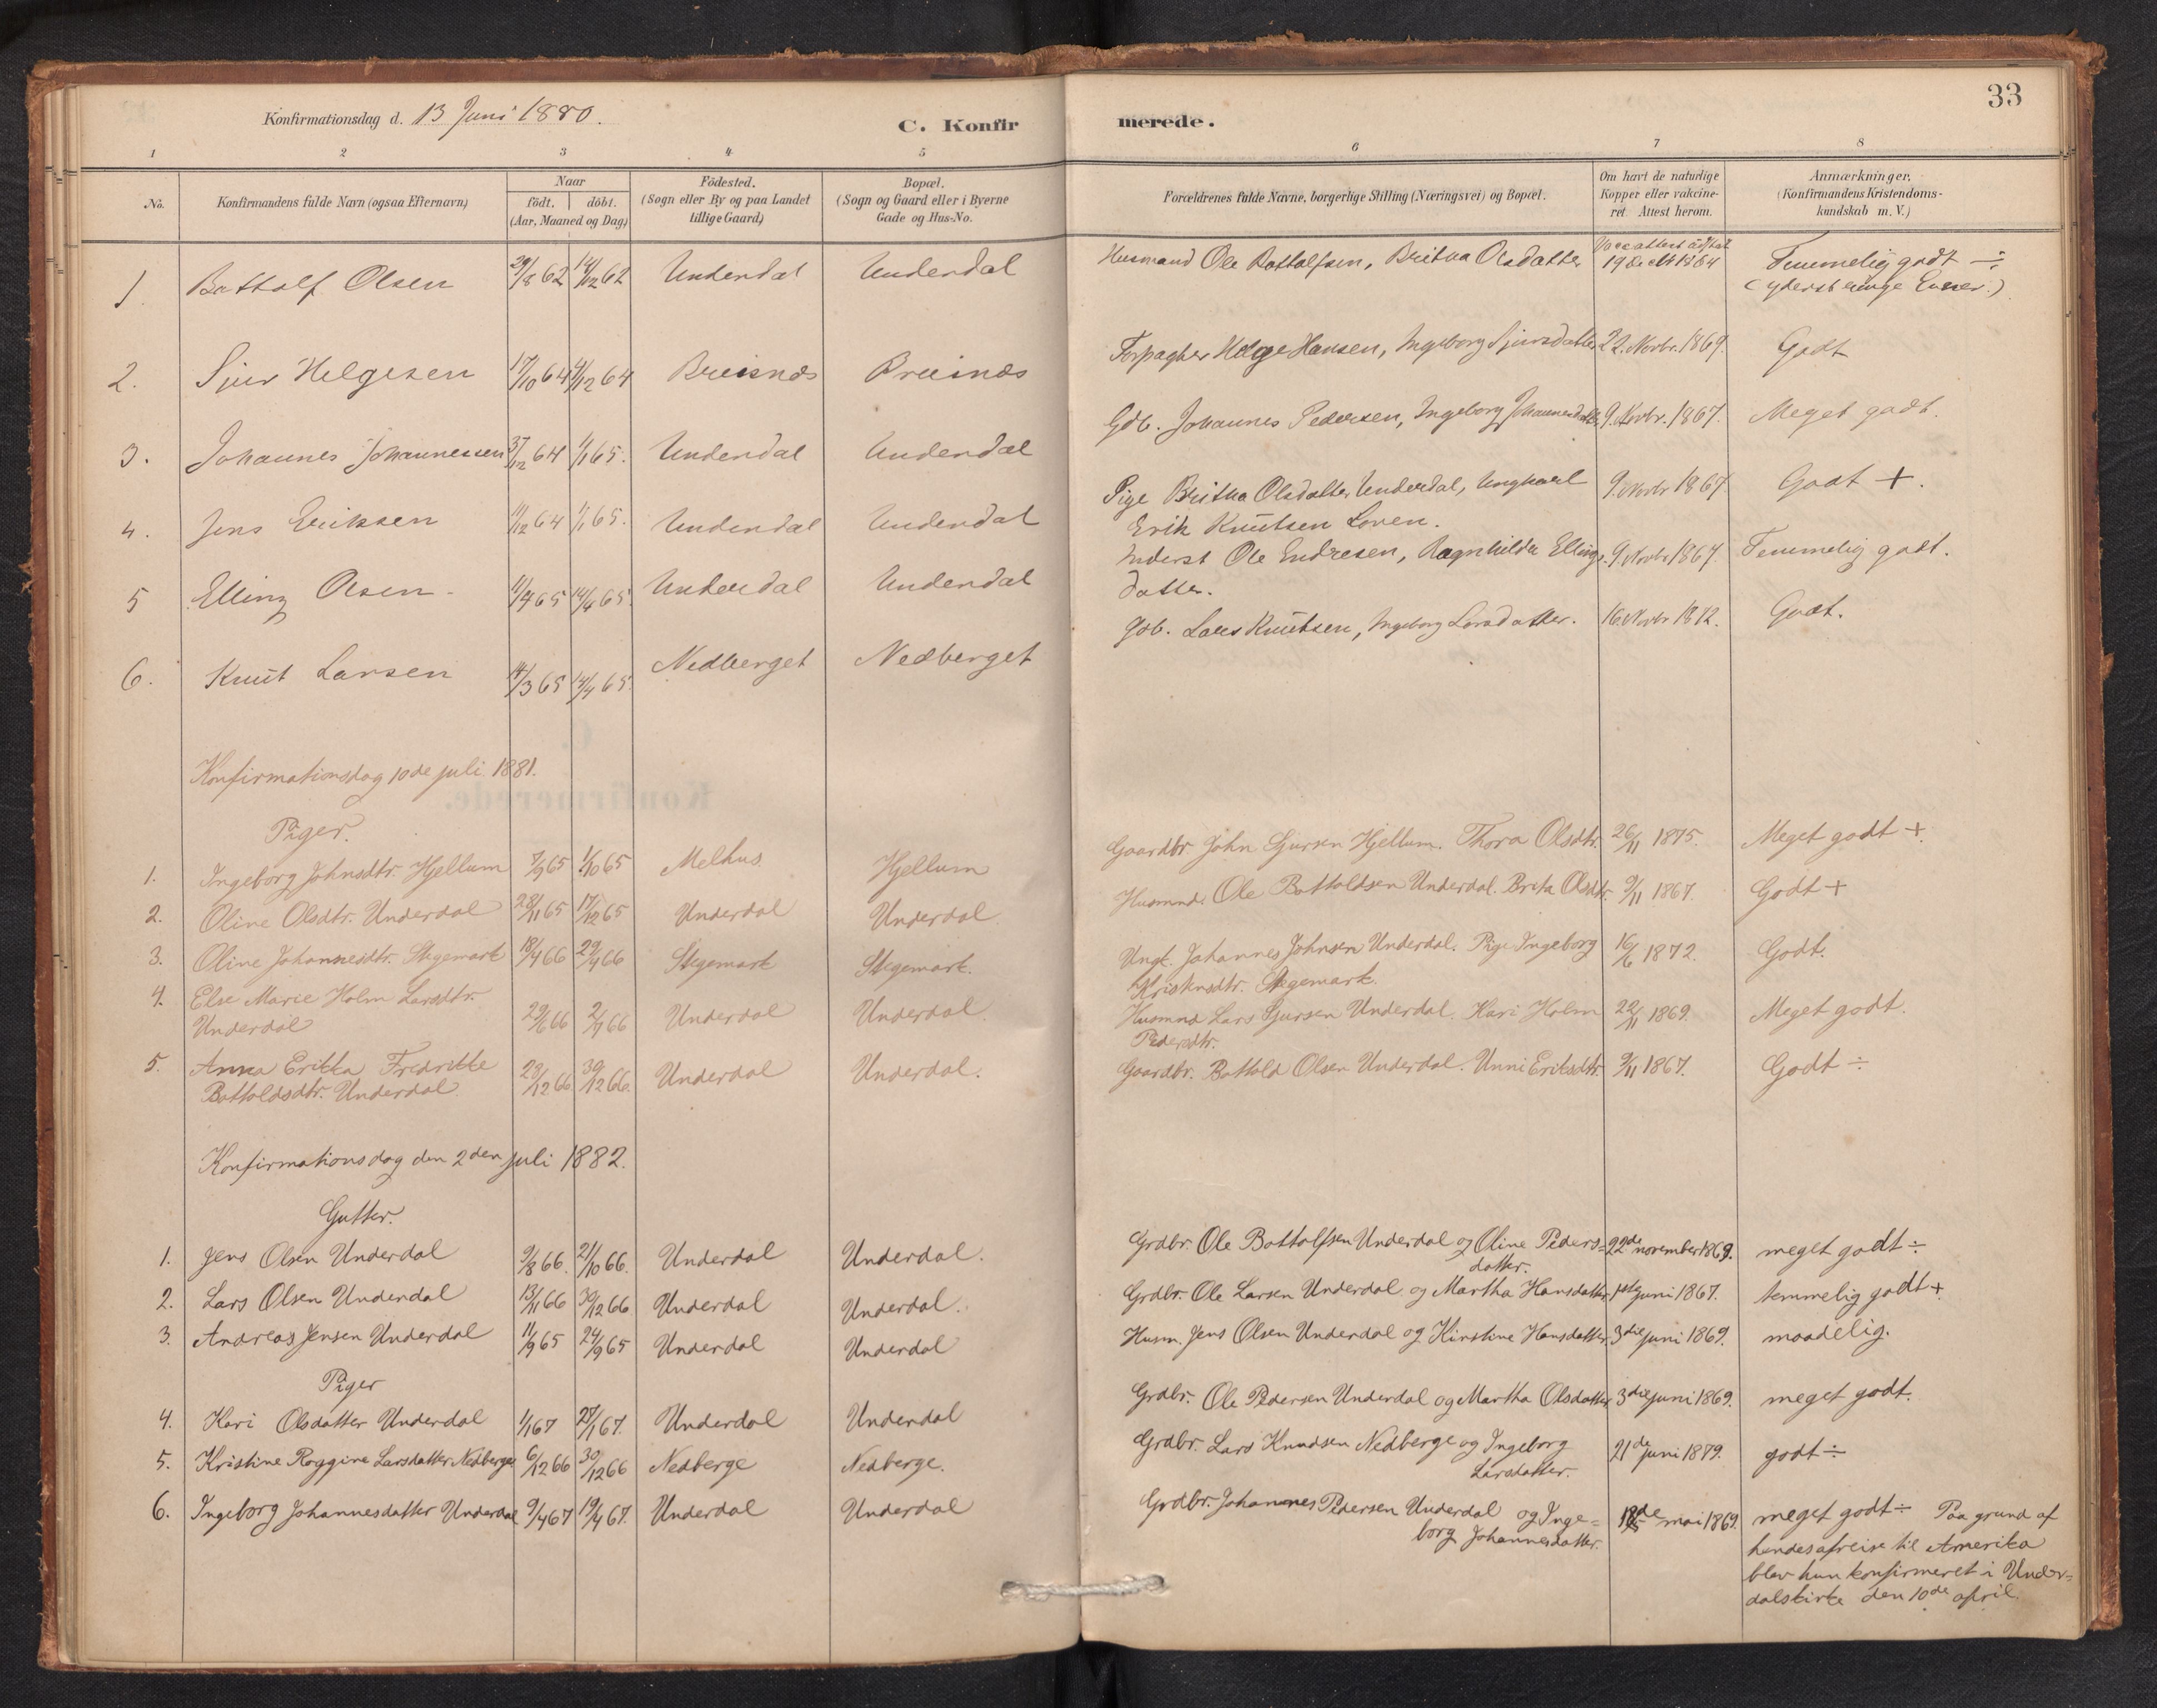 33
Konfirmationsdag d. 13 Juni 1880.
C. Konfirmerede.
1 2 3 4 5 6 7 8
No. Konfirmandens fulde Navn (ogsaa Efternavn) Naar födt. döbt. (Aar, Maaned og Dag) Födested. (Sogn eller By og paa Landet tillige Gaard) Bopæl. (Sogn og Gaard eller i Byerne Gade og Hus-No. Forældrenes fulde Navne, borgerlige Stilling (Næringsvei) og Bopæl. Om havt de naturlige Kopper eller vakcineret. Attest herom. Anmærkninger. (Konfirmandens Kristendomskundskab m. V.)
1. Bottolf Olsen 29/8 62 14/12 62 Underdal Underdal Husmand Ole Bottolfsen, Britha Olsdatter 1864 Temmelig godt ÷
(yderst ringe Evner.)
2. Sjur Helgesen 17/10 64 4/12 64 Breisnæs Breisnæs Forpagter Helge Hansen, Ingeborg Sjursdatter 22. Novbr. 1869. Godt
3. Johannes Johannessen 31/12 64 1/1 65. Underdal Underdal Gdb. Johannes Pedersen, Ingeborg Johannesdatter 9. Novbr. 1867. Meget godt.
4. Jens Eriksen 11/12 64 1/1 65. Underdal Underdal Pige Britha Olsdatter Underdal, Ungkarl 9. Novbr 1867 Godt +.
Erik Knutsen Loven.
5 Elling Olsen 11/4 65 14/6 65. Underdal Underdal Inderst Ole Endresen, Ragnhilda Ellings- 9 Novbr 1867. Temmelig godt.
datter.
6. Knut Larsen 14/3 65 14/4 65. Nedberget Nedberget Gdb. Lars Knutsen, Ingeborg Larsdatter. 16. Novbr 1872. Godt.
Konfirmationsdag 10de juli 1881.
Piger.
1. Ingeborg Johnsdtr. Hjellum 7/9 65 1/10 65 Melhus Hjellum Gaardbr John Sjursen Hjellum. Thora Olsdtr. 26/11 1875. Meget godt +
2. Oline Olsdtr. Underdal 28/11 65 17/12 65 Underdal Underdal Husmnd. Ole Bottoldsen Underdal. Brita Olsdtr. 9/11 1867. Godt +
3. Oline Johannesdtr. Stegemark 18/4 66 29/4 66 Stegemark Stegemark. Ungk. Johannes Johnsen Underdal. Pige Ingeborg 16/6 1872. Godt.
Kristensdtr. Stegemark.
4. Else Marie Holm Larsdtr.
Underdal 29/6 66 2/9 66 Underdal Underdal. Husmnd Lars Sjursen Underdal. Kari Holm 22/11 1869. Meget godt.
Pedersdtr.
5. Anna Erikka Fredrikke
Bottoldsdtr. Underdal 23/12 66 30/12 66. Underdal Underdal. Gaardbr. Bottold Olsen Underdal. Unni Eriksdtr. 9/11 1867. Godt ÷
Konfirmationsdag den 2den juli 1882.
Gutter.
1. Jens Olsen Underdal 9/8 66. 21/10 66. Underdal Underdal. Grdbr. Ole Bottolfsen Underdal og Oline Peders- 22de november 1869. meget godt ÷
datter.
2. Lars Olsen Underdal 13/11 66 30/12 66 Underdal Underdal. Grdbr. Ole Larsen Underdal og Martha Hansdatter 1ste juni 1867. temmelig godt +
3. Andreas Jensen Underdal 11/9 65 24/9 65 Underdal Underdal Husm. Jens Olsen Underdal og Kirstine Hansdatter. 3die juni 1869. maadelig.
Piger
4. Kari Olsdatter Underdal 1/1 67 27/1 67. Underdal Underdal Grdbr. Ole Pedersen Underdal og Martha Olsdatter 3die juni 1869. meget godt.
5. Kristine Roggine Larsdatter Nedberge 6/12 66 30/12 66 Nedberge Nedberge. Grdbr. Lars Knudsen Nedberge og Ingeborg 21de juni 1879. godt ÷
Larsdatter.
6. Ingeborg Johannesdatter Underdal 9/4 67 19/4 67. Underdal Underdal Grdbr. Johannes Pedersen Underdal og Inge= 18de mai 1869. meget godt ÷ Paa grund af
borg Johannesdatter. hendes afreise til Amerika
blev hun konfirmeret i Under=
dals kirke den 10de april.